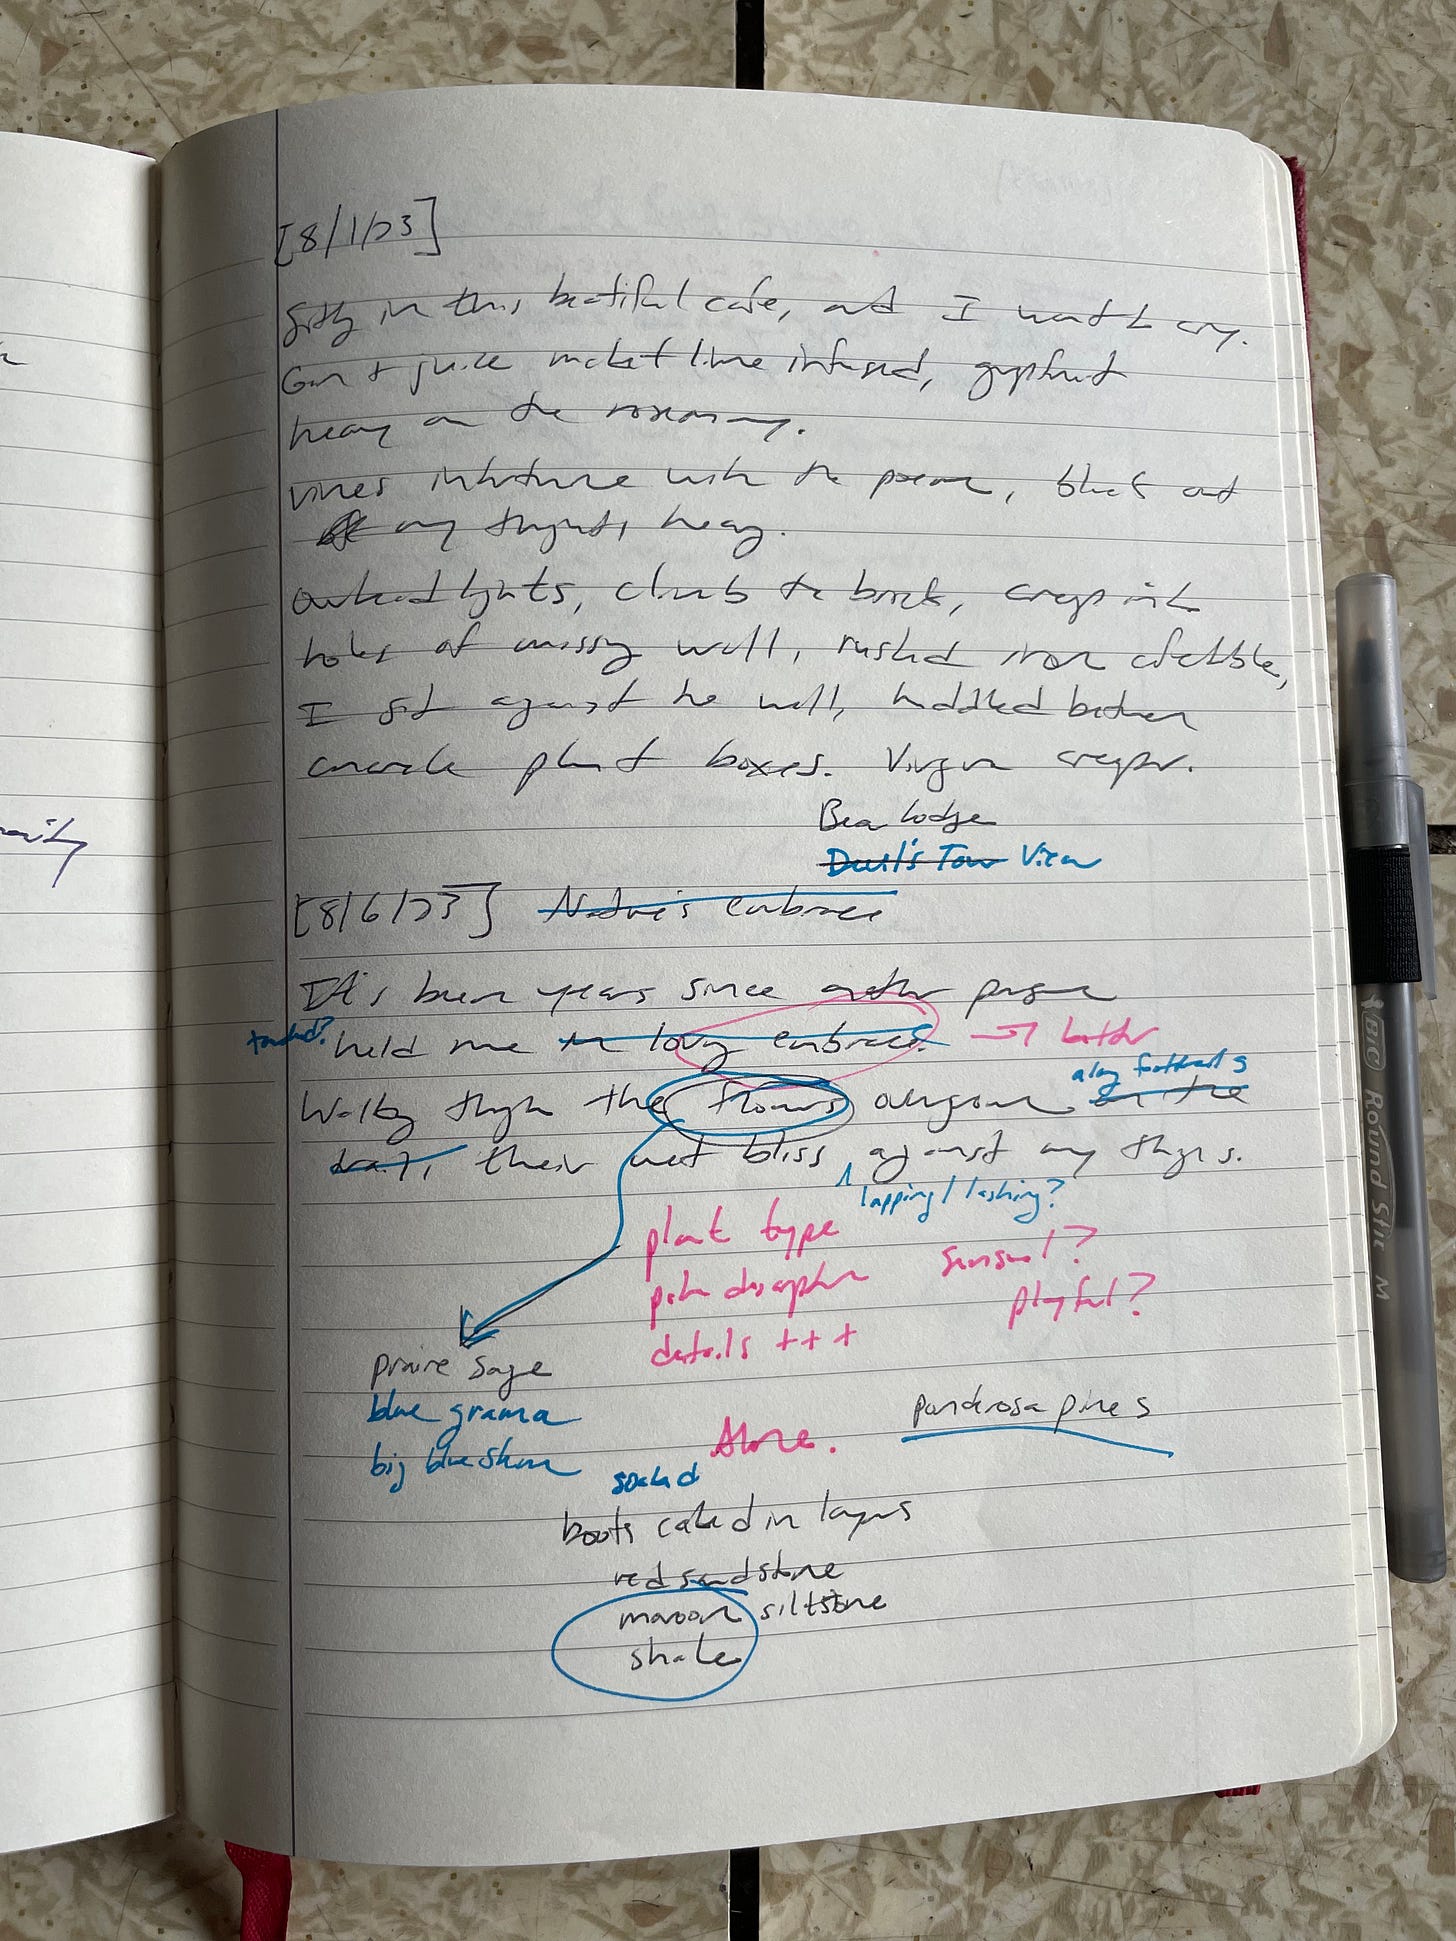 [8/1/23]
Sitting in this beautiful cafe, and I want to cry.
Gin & juice lime infused, grapefruit
heavy on the rosemary.
vines intertwine with the, block out
my thoughts, heavy.
lights, climb the brick, creep into
holes of missing wall, rusted iron
I sit against the wall, huddled between
concrete plant boxes. Virginia creeper.
Bear Lodge
Devil's Tower View
[8/6/23] Nature's embrace
It's been years since another person
touched? held me in loving embrace. →
along foothills
Walking through the flowers on the
their wet bliss against my thighs.
lapping / lashing?
plant type
sensual?
playful?
details +++
prairie sage
blue grama
ponderosa pines
big bluestem
soaked
boots caked in layers
red sandstone
maroon siltstone
shale
BIC Round Stic M